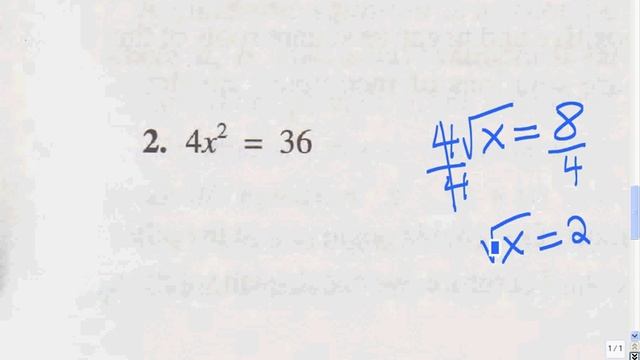 2. 4x² = 36
4√x = 8
4 4
√x = 2
1/1